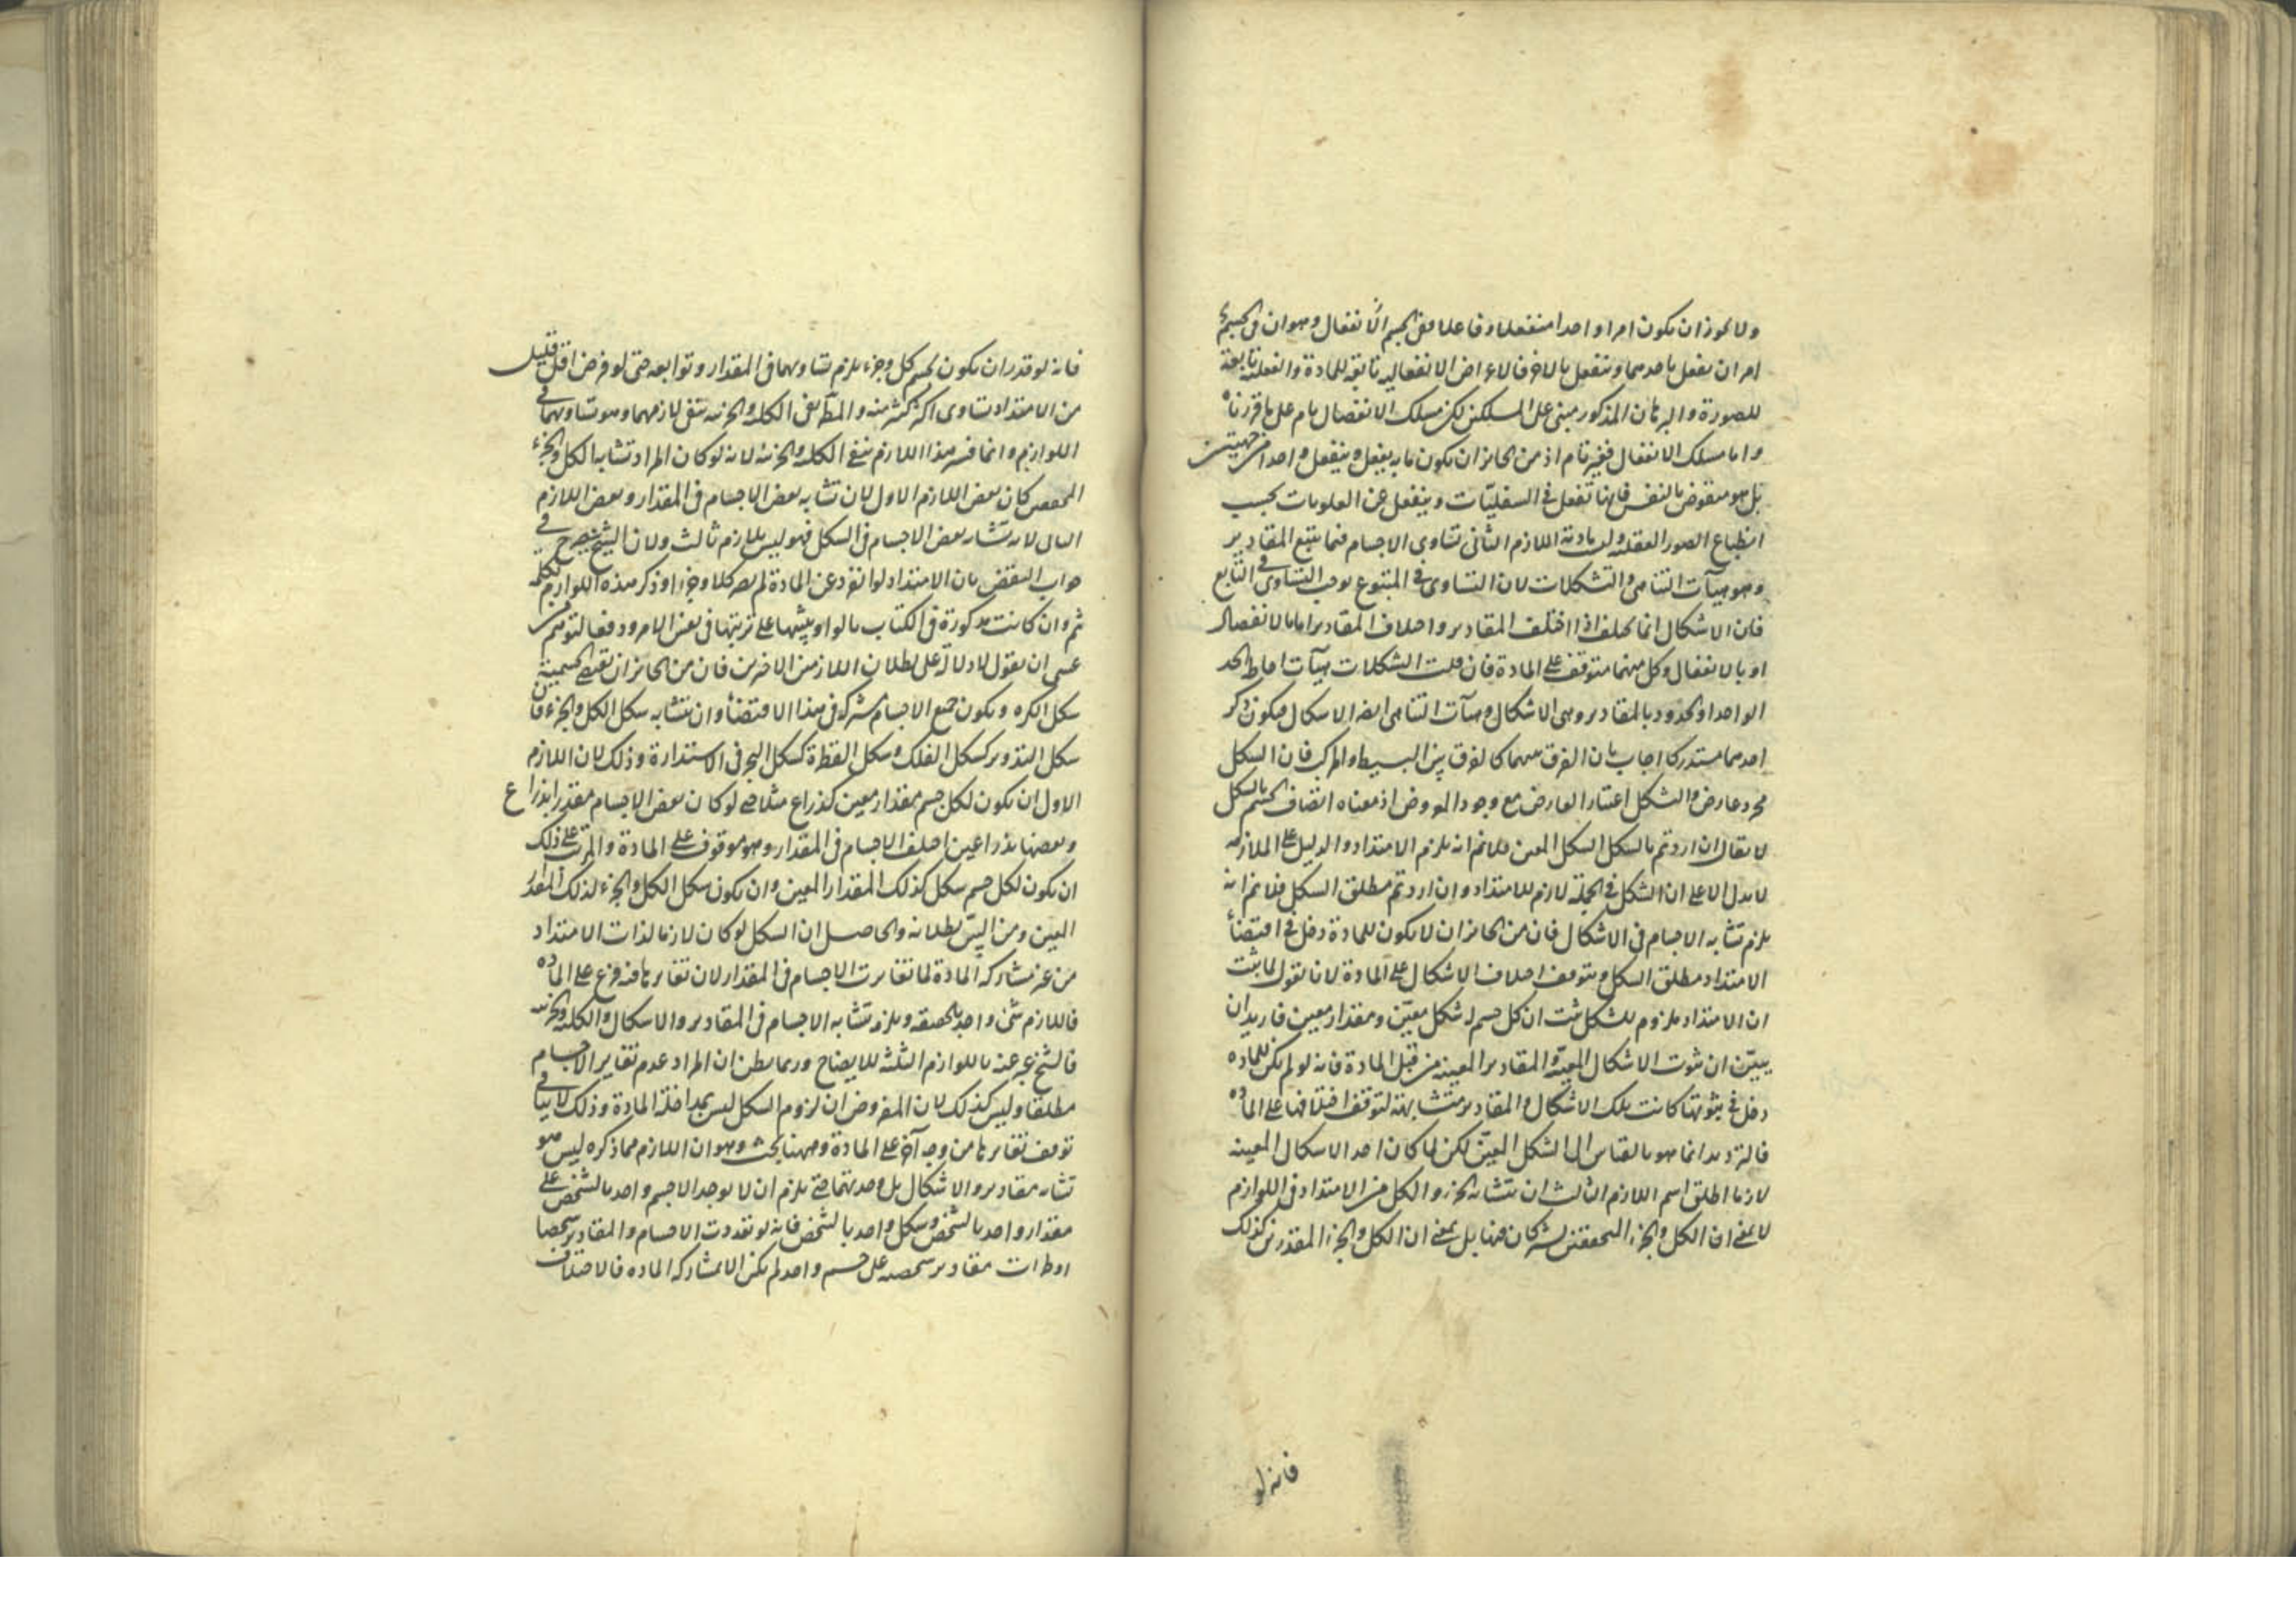 ولا يجوز ان يكون امرا واحدا منفعلا وفاعلا ففي الجسم الانفعال وهو ان في الجسم
امران يفعل باحدهما وينفعل بالاخر فالاعراض الانفعالية تابعة للمادة والفعلية تابعة
للصورة والبرهان المذكور مبني على المسلكين لكن مسلك الانفصال تام على ما قررناه
واما مسلك الانفعال فغير تام اذ من الجائز ان يكون ما به يفعل وينفعل واحدا من جهتين
بل هو منقوض بالنفس فانها تفعل في السفليات وينفعل عن العلويات بحسب
انطباع الصور العقلية وليست مادية اللازم الثاني تساوي الاجسام فيما يتبع المقادير
وهو هيآت التناهي والتشكلات لان التساوي في المتبوع يوجب التساوي في التابع
فان الاشكال انما يختلف اذا اختلف المقادير واختلاف المقادير اما بالانفصال
او بالانفعال وكل منهما متوقف على المادة فان قلت الشكلات هيآت احاطة الحد
الواحد او الحدود بالمقادير وهي الاشكال وهيآت التناهي ايضا الاشكال فيكون ذكر
احدهما مستدركا اجاب بان الفرق بينهما كالفرق بين البسيط والمركب فان الشكل
مجرد عارض والتشكل اعتبار العارض مع وجود المعروض اذ معناه اتصاف الجسم بالشكل
لا يقال ان اردتم بالشكل الشكل المعين فلا نم انه يلزم الامتداد والدليل على الملازمة
لا يدل الا على ان الشكل في الجملة لازم للامتداد وان اردتم مطلق الشكل فلا نم انه
يلزم تشابه الاجسام في الاشكال فان من الجائز ان لا يكون للمادة دخل في اقتضاء
الامتداد مطلق الشكل ويتوقف اختلاف الاشكال على المادة لانا نقول لما ثبت
ان الامتداد ملزوم للشكل ثبت ان كل جسم له شكل معين ومقدار معين فاريد ان
يبين ان ثبوت الاشكال المعينة والمقادير المعينة من قبل المادة فانه لو لم يكن للمادة
دخل في ثبوتها كانت تلك الاشكال والمقادير متشابهة لتوقف اختلافها على المادة
فالترديد انما هو بالقياس الى الشكل المعين لكن لما كان احد الاشكال المعينة
لازما اطلق اسم اللازم الثالث ان يتشابه الجزء والكل من الامتداد في اللوازم
لا بمعنى ان الكل والجزء المحققين يشتركان فيها بل بمعنى ان الكل والجزء المقدرين كذلك
فانه لو
فانه لو قدر ان يكون لجسم كل وجزء يلزم تساويهما في المقدار وتوابعه حتى لو فرض اقل قليل
من الامتداد تساوى اكثر كثير منه والمطابق الكلية والجزئية بنفي لازمهما وهو تساويهما في
اللوازم وانما فسر هذا اللازم بنفي الكلية والجزئية لانه لو كان المراد تشابه الكل والجزء
المحققين كان بعض اللازم الاول لان تشابه بعض الاجسام في المقدار وبعض اللازم
الثاني لانه تشابه بعض الاجسام في الشكل فهو ليس بلازم ثالث ولان الشيخ يصرح في
جواب النقض بان الامتداد لو انفرد عن المادة لم يصر كلا وجزءا وذكر هذه اللوازم بكلمة
ثم وان كانت مذكورة في الكتاب بالواو تنبيها على ترتيبها في نفس الامر ودفعا لتوهم من
عسى ان يقول لا دلالة على بطلان اللازمين الاخرين فان من الجائز ان تقتضي الجسمية
شكل الكرة ويكون جميع الاجسام مشتركة في هذا الاقتضاء وان يتشابه شكل الكل والجزء فان
شكل التدوير كشكل الفلك وشكل القطرة كشكل البحر في الاستدارة وذلك لان اللازم
الاول ان يكون لكل جسم مقدار معين كذراع مثلا حتى لو كان بعض الاجسام مقدرا بذراع
وبعضها بذراعين اختلف الاجسام في المقدار وهو موقوف على المادة والمرتب على ذلك
ان يكون لكل جسم شكل كذلك المقدار المعين وان يكون شكل الكل والجزء لذلك المقدار
المعين ومن البين بطلانه والحاصل ان الشكل لو كان لازما لذات الامتداد
من غير مشاركة المادة لما تغايرت الاجسام في المقدار لان تغايرها فيه فرع على المادة
فاللازم شيء واحد بالحقيقة ويلزمه تشابه الاجسام في المقادير والاشكال والكلية والجزئية
فالشيخ عبر عنه باللوازم الثلثة للايضاح وربما يظن ان المراد عدم تغاير الاجسام
مطلقا وليس كذلك لان المفروض ان لزوم الشكل ليس بمداخلة المادة وذلك لا ينافي
توقف تغايرها من وجه آخر على المادة وههنا بحث وهو ان اللازم مما ذكره ليس هو
تشابه مقادير والاشكال بل وحدتهما حتى يلزم ان لا يوجد الا جسم واحد بالشخص على
مقدار واحد بالشخص وشكل واحد بالشخص فانه لو تعددت الاجسام والمقادير شخصا
مقادير شخصية على جسم واحد لم يكن الا بمشاركة المادة فالاختلاف